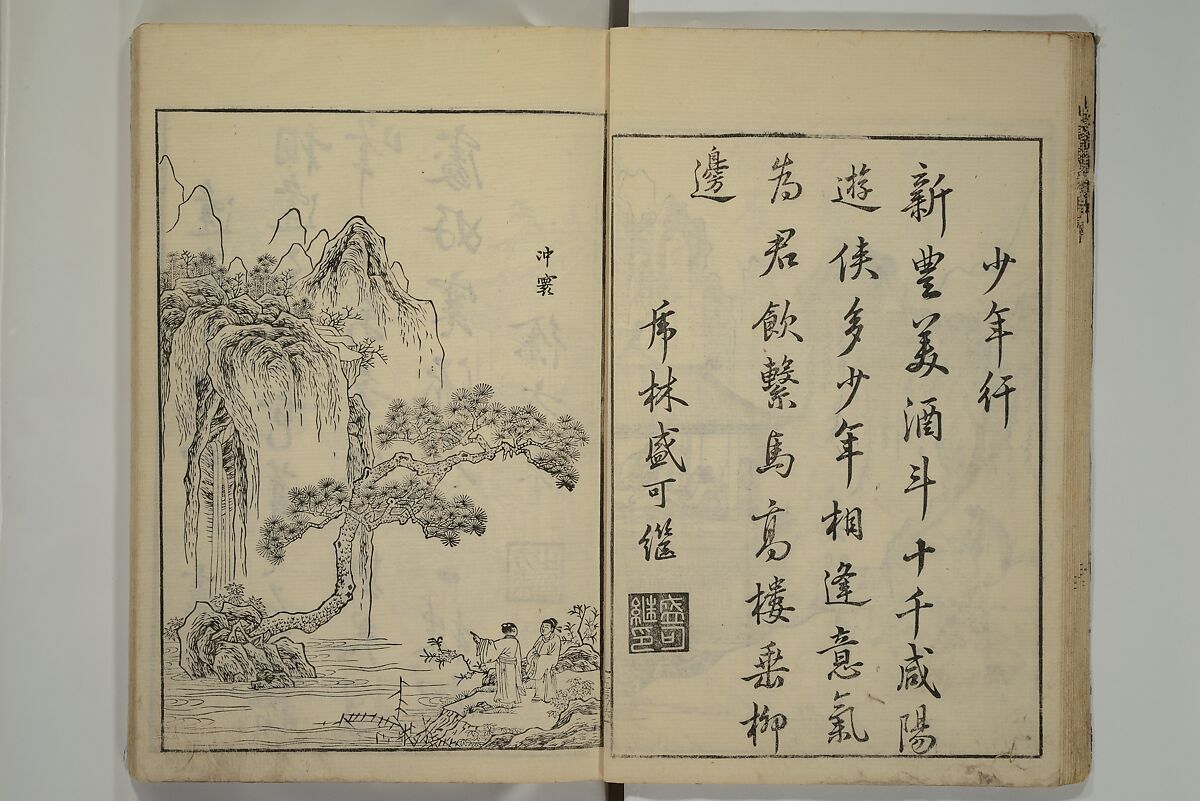 少年行
新豊美酒斗十千咸陽
遊侠多少年相逢意氣
為君飲繫馬高樓垂柳
邊
虎林盛可繼
盛可
繼印
冲寰